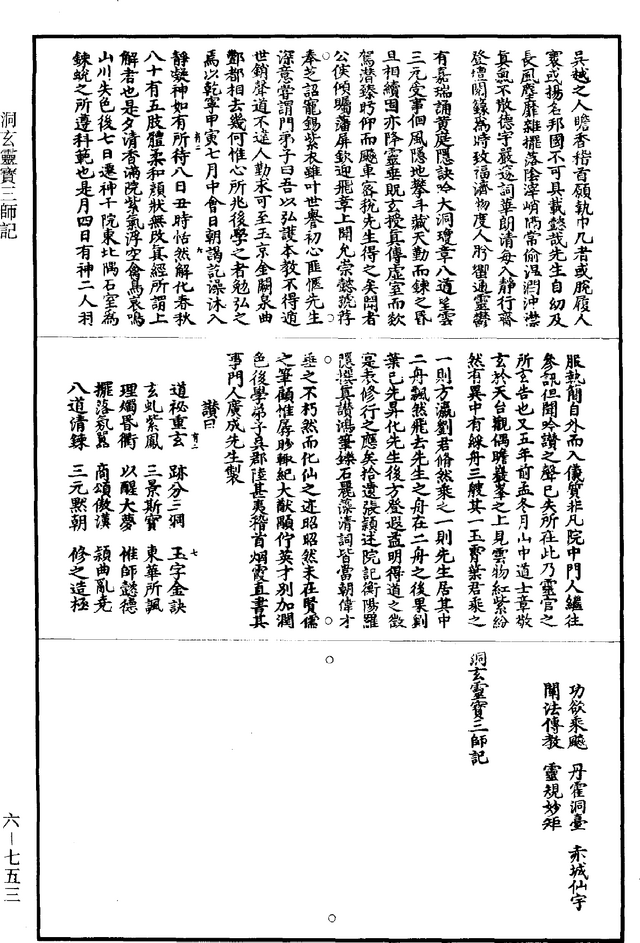 吳越之人瞻香稽首願執巾几者或脫履人
寰或揚名邦國不可具載懿哉先生自幼及
長風塵靡雜擺落陰滓峭偶常倫浥潤沖襟
真氣不散德宇嚴邃詞華朗清每入靜行齋
登壇閱籙為時致福濟物度人肹蠁通靈鬱
有嘉瑞誦黃庭隱訣吟大洞瓊章八道望雲
三元受事徊風隱地攀斗藏天勤而鍊之昏
旦相續固亦降靈垂貺玄授真傳虛室而欻
駕潛臻眄仰而飈車容裔先生得之矣閟者
公侯傾矚藩屏欽迎飛章上聞允崇懿號荐
奉芝詔寵錫紫衣雖叶世譽初心匪愜先生
深意嘗謂門弟子曰吾以弘護本教不得遁
世銷聲道不違人勤求可至玉京金闕泉曲
酆都相去幾何惟心所兆後學之者勉弘之
焉以乾寧甲寅七月中會日朝謁訖澡沐入
靜凝神如有所待八日丑時怗然解化春秋
八十有五肢體柔和顏狀無改真經所謂上
解者也是夕清香滿院紫氣浮空禽鳥哀鳴
山川失色後七日遷神于院東北隅石室為
鍊蛻之所遵科範也是月四日有神二人羽
服執簡自外而入儀質非凡院中門人繼往
參訊但聞吟讚之聲已失所在此乃靈官之
所玄告也又五年前孟冬月山中道士章敬
玄於天台觀偶瞻巖峯之上見雲物紅紫紛
然有異中有綵舟三艘其一玉霄葉君乘之
一則方瀛劉君翛然乘之一則先生居其中
二舟飄然飛去先生之舟在二舟之後果劉
葉已先昇化先生後方登遐蓋明得道之徵
寔表修行之應矣拾遺張穎述院記衡陽羅
隱撰真讚鴻筆媲石麗藻清詞皆當朝偉才
垂之不朽然而化仙之迹昭昭然未在賢儒
之筆顧惟孱眇輙紀大猷顒佇英才別加潤
色後學弟子吳郡陸甚夷稽首烟霞直書其
事門人廣成先生製
讚曰
道祕重玄　跡分三洞　玉字金訣
玄虬紫鳳　三景斯寶　東華所諷
理燭昏衢　以醒大夢　惟師懿德
擺落氛囂　商頌傲漢　潁曲亂堯
八道清鍊　三元默朝　修之這極
功欲乘飈　丹霍洞臺　赤城仙宇
闡法傳教　靈規妙矩
洞玄靈寶三師記
洞玄靈寶三師記
六－七五三